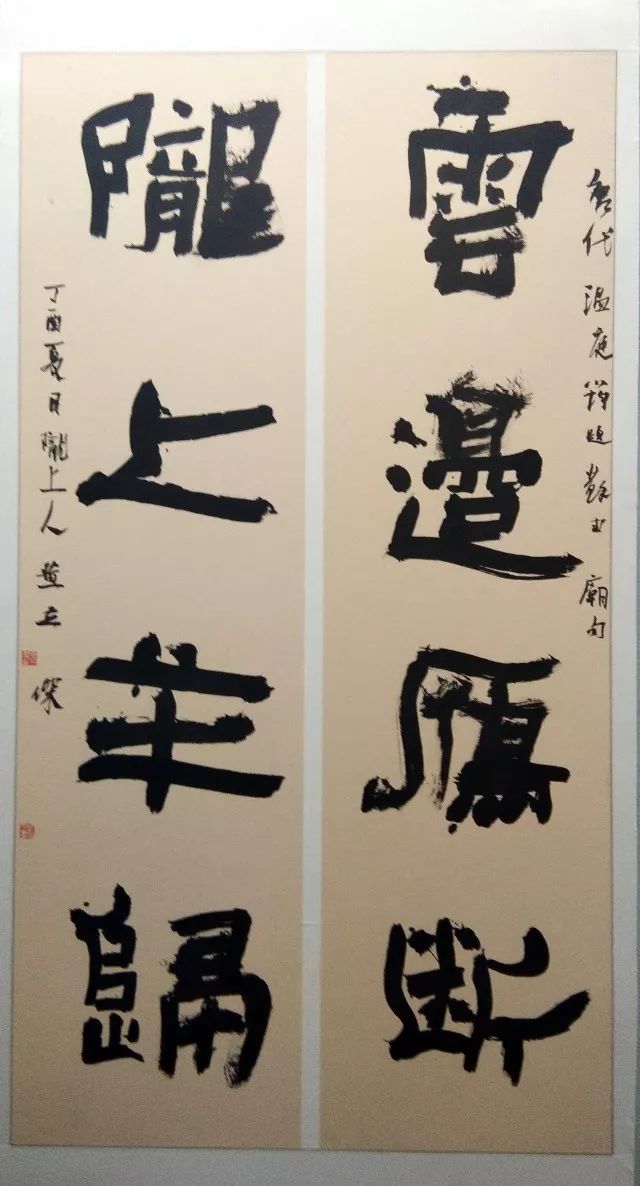 唐代温庭筠題蘇武廟句
雲邊鴈断
隴上羊歸
丁酉夏日隴上人立